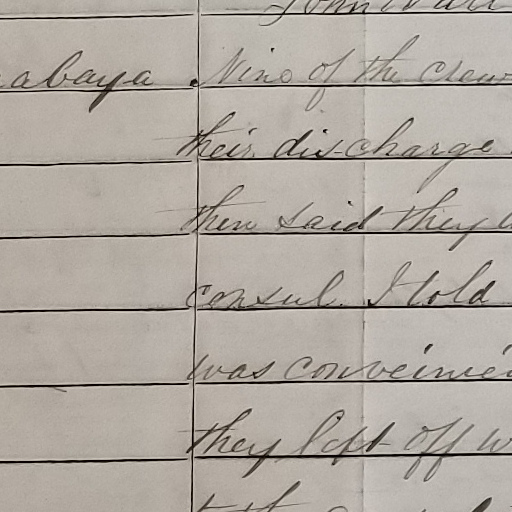 John
abaya Nine of the crew
their discharge
then said they
consul. I told
was conveinie
they left off w